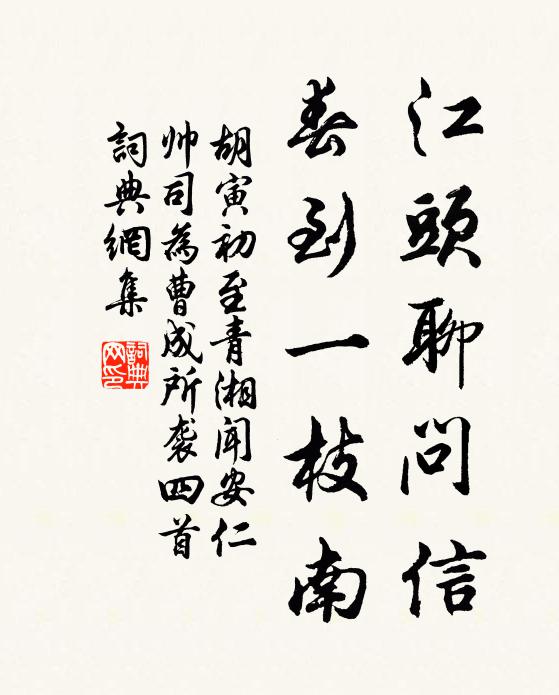 江頭聊問信
春到一枝南
胡寅初至青湘闻安仁
帅司為曹成所袭四首
詞典網集
詞典
网印